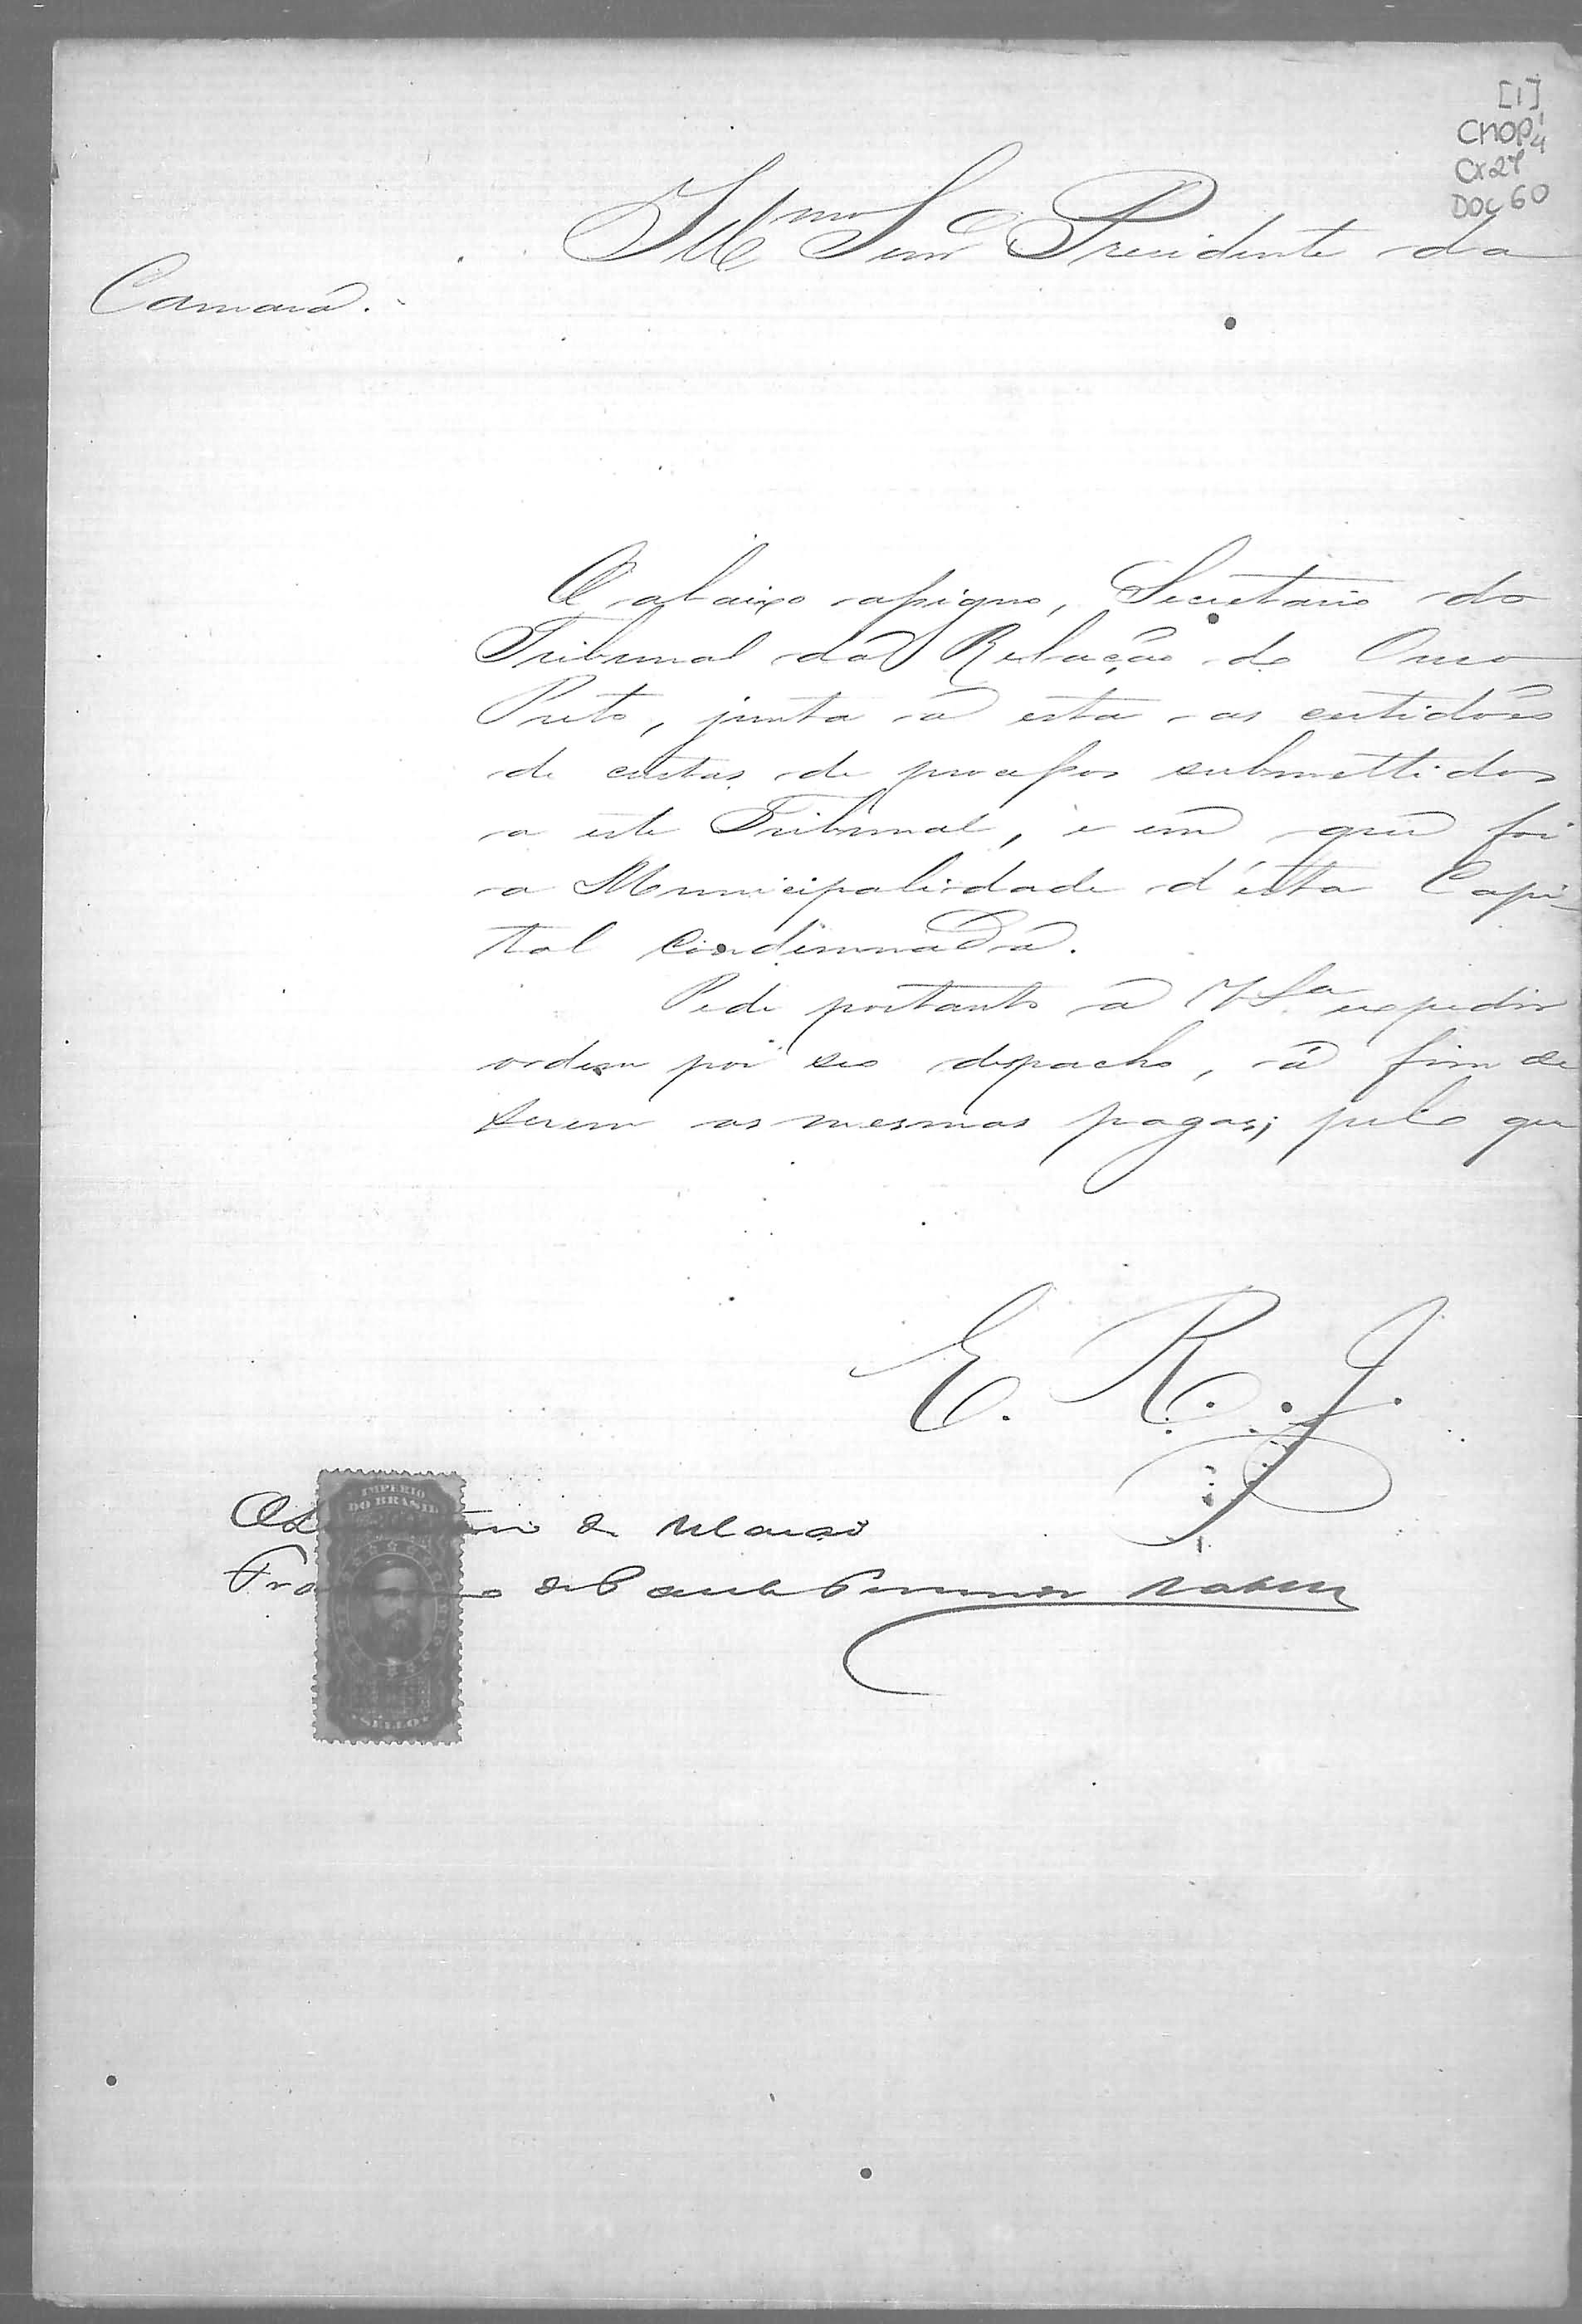 [1]
CMOP
Cx 27
DOC 60
Illmo Senr Presidente da
Camara.
O abaixo assigno, Secretario do
Tribunal da Relação de Ouro
Preto, junta á esta as certidões
de custas de processos submettidos
a este Tribunal, e em que foi
a Municipalidade d'esta Capi-
tal condemnada.
Pede portanto a V Sa expedir
ordem por seo despacho, á fim de
serem as mesmas pagas; pelo que
E. R. J.
IMPERIO
DO BRASIL
de
de Paula
SELLO